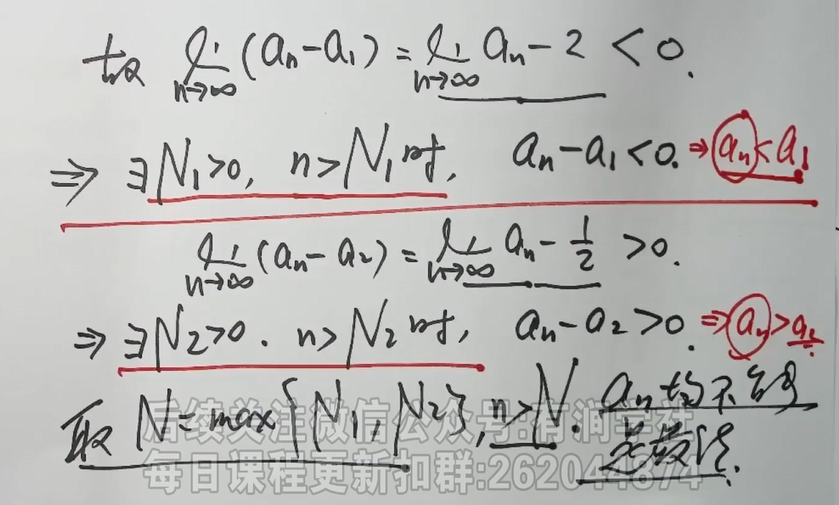 故 lim n→∞ (an-a1) = lim n→∞ an-2 < 0.
⇒ ∃N1>0, n>N1时, an-a1<0. ⇒ an<a1
lim n→∞ (an-a2) = lim n→∞ an-1/2 >0.
⇒ ∃N2>0. n>N2时, an-a2>0. ⇒ an>a2
取 N=max{N1,N2}, n>N. an均不能
后续关注微信公众号:有涧学社
每日课程更新扣群:262044874